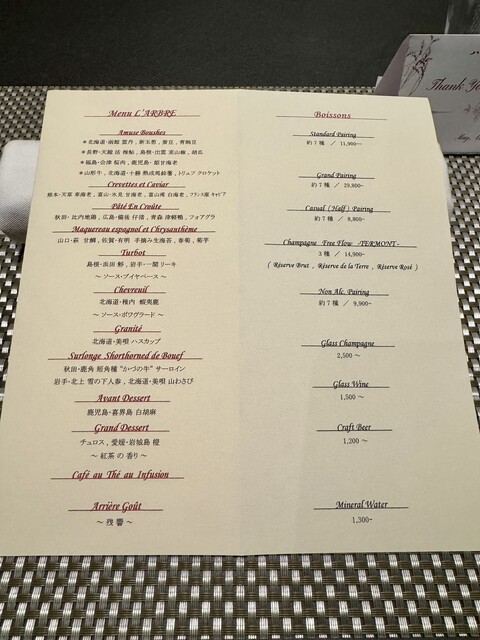 Menu L'ARBRE
Amuse Boushes
＊北海道・函館 雲丹 , 新玉葱 , 蚕豆 , 青豌豆
＊長野・天龍 活 稚鮎 , 島根・出雲 茶山椒 , 胡瓜
＊福島・会津 桜肉 , 鹿児島・姫甘海老
＊山形牛 , 北海道・十勝 熟成馬鈴薯 , トリュフ クロケット
Crevettes et Caviar
熊本・天草 車海老 , 富山・氷見 甘海老 , 富山湾 白海老 , フランス産 キャビア
Pâté En Croûte
秋田・比内地鶏 , 広島・備後 仔猪 , 青森 津軽鴨 , フォアグラ
Maquereau espagnol et Chrysanthème
山口・萩 甘鯛 , 佐賀・有明 手摘み生海苔 , 春菊 , 菊芋
Turbot
島根・浜田 鮃 , 岩手・一関 リーキ
～ ソース・ブイヤベース ～
Chevreuil
北海道・稚内 蝦夷鹿
～ ソース・ポワヴラード ～
Granité
北海道・美唄 ハスカップ
Surlonge Shorthorned de Bouef
秋田・鹿角 短角種 "かづの牛" サーロイン
岩手・北上 雪の下人参 , 北海道・美唄 山わさび
Avant Dessert
鹿児島・喜界島 白胡麻
Grand Dessert
チュロス , 愛媛・岩城島 橙
～ 紅茶 の 香り ～
Café au Thé au Infusion
Arrière Goût
～ 残 響 ～
Boissons
Standard Pairing
約7種 ／ 11,900-
Grand Pairing
約7種 ／ 29,800-
Casual ( Half ) Pairing
約7種 ／ 8,800-
Champagne Free Flow -TERMONT-
3種 ／ 14,900-
( Réserve Brut , Réserve de la Terre , Réserve Rosé )
Non Alc. Pairing
約7種 ／ 9,900-
Glass Champagne
2,500 ～
Glass Wine
1,500 ～
Craft Beer
1,200 ～
Mineral Water
1,300-
Thank
May,